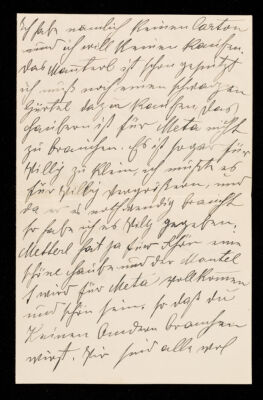 Ich habe nämlich keinen Carton
und ich will keinen kaufen.
Das Manterl ist schon geputzt
ich muß noch einen schwarzen
Gürtel dazu kaufen, das
Hauberl ist für Meta nicht
zu brauchen. Es ist sogar für
Willy zu klein, ich müßte es
für Willy vergrößern, und
da er es nothwendig braucht
so habe ich es Willy gegeben.
Metterl hat ja für schön eine
schöne Haube und der Mantel
wird für Meta vollkomen
und schön sein, so daß du
keinen Andern brauchen
wirst. Wir sind alle wol